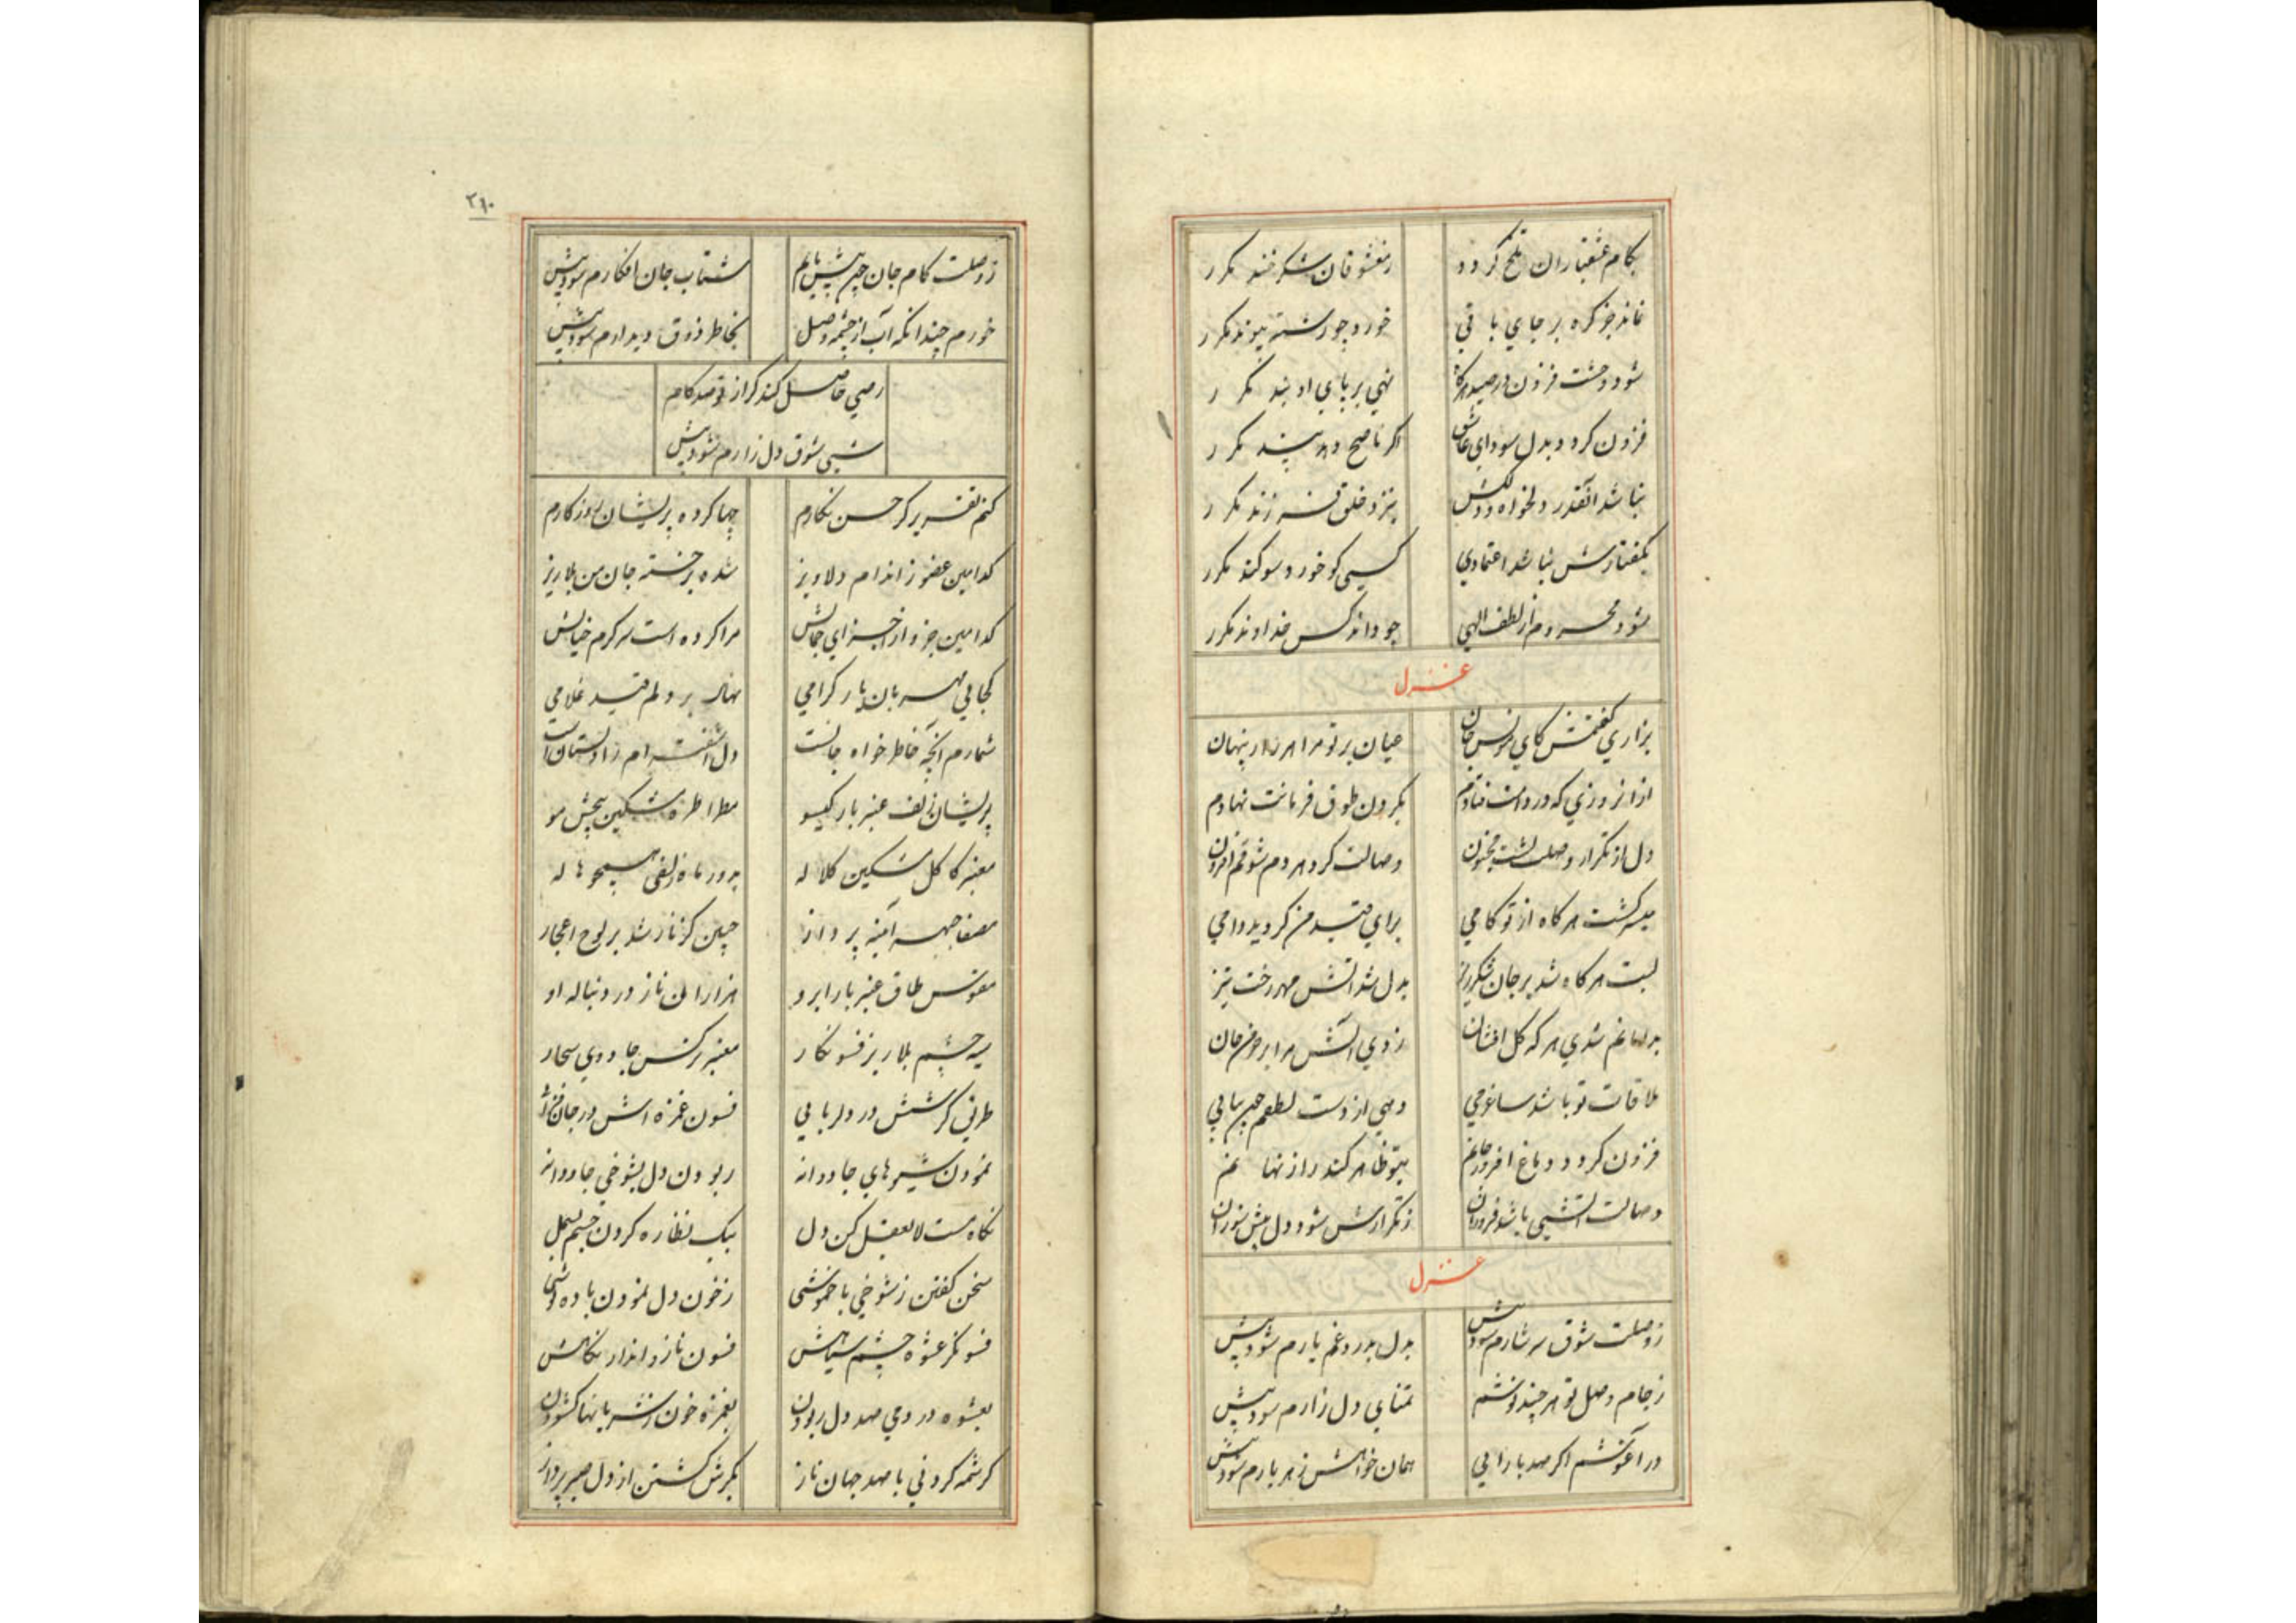 بکام عشقبازان تلخ کردد ز معشوقان شکرخند مکرر
نماند جز کره بر جای باقی خورد چو رشته پیوند مکرر
شود وحشت فزون در صید هرکاه نهی بر پای او بند مکرر
فزون کردد بدل سودای عاشق اکر ناصح دهد پند مکرر
نباشد آنقدر دلخواه ودلکش بنزد خلق فرزند مکرر
بکفتارش نباشد اعتمادی کسی کو خورد سوکند مکرر
شود محروم از لطف الهی چو داند کس خداوند مکرر
غزل
بزاری کفتمش کای مونس جان عیان بر تو مرا هر راز پنهان
از انروزی که در دامت فتادم بکردن طوق فرمانت نهادم
دل از تکرار وصلت کشت مجنون وصالت کرد هر دم شوقم افزون
میسر کشت هر کاه از تو کامی برای قید من کردید دامی
لبت هر کاه شد بر جان شکرریز بدل شد آتش مهر رخت تیز
بدامانم شدی هر که کل افشان زدی آتش مرا بر خرمن جان
ملاقات تو باشد ساغر می دهی از دست لطفم چون پیاپی
فزون کردد دماغ افروز جانم بتو ظاهر کند راز نهانم
وصالت آتشی باشد فروزان ز تکرارش شود دل بیش سوزان
غزل
ز وصلت شوق سرشارم شود بیش بدل درد و غم یارم شود بیش
ز جام وصل تو هر چند نوشم تمنای دل زارم شود بیش
در آغوشم اکر صد بار آیی همان خواهش ز هر بارم شود بیش
۲۱۰
ز وصلت کام جان چون بیش یابم شتاب جان افکارم شود بیش
خورم چندانکه آب از چشمه وصل بخاطر ذوق دیدارم شود بیش
رضی حاصل کند کر از تو صد کام
شبی شوق دل زارم شود بیش
کنم تقریر کر حسن نکارم چها کرده پریشان روزکارم
کدامین عضو ز اندام دلاویز شده بر خسته جان من بلاریز
کدامین جزو از اجزای جمالش مرا کرده است سرکرم خیالش
کجایی مهربان یار کرامی نهاد بر دلم قید غلامی
شمارم آنچه خاطرخواه جانست دل آشفته‌ام زا دلستان است
پریشان زلف عنبر بار کیسو مطرا طره مشکین پیچش مو
معنبر کاکل مشکین کلاله بدور ماه زلفی همچو هاله
مصفا جبهه آینه پرداز جبین کز ناز شد بر لوح اعجاز
مقوس طاق عنبر بار ابرو هزاران ناز در دنباله او
سیه چشم بلاریز فسونکار معنبر نرکس جادوی سحار
طراز کرشمش در دلربایی فسون غمزه اش در جان فزایی
نمودن شیوهای جاودانه ربودن دل بشوخی جاودانه
نکاه مست لایعقل کن دل بیک نظاره کردن جسم بسمل
سخن کفتن ز شوخی با خموشی ز خون دل نمودن باده نوشی
فسونکر عشوه چشم سیاهش فسون ناز و انداز نکاهش
بعشوه در دمی صد دل ربودن بغمزه خون ز شریانها کشودن
کرشمه کردنی با صد جهان ناز بکردش کشتن از دل صبر پرداز